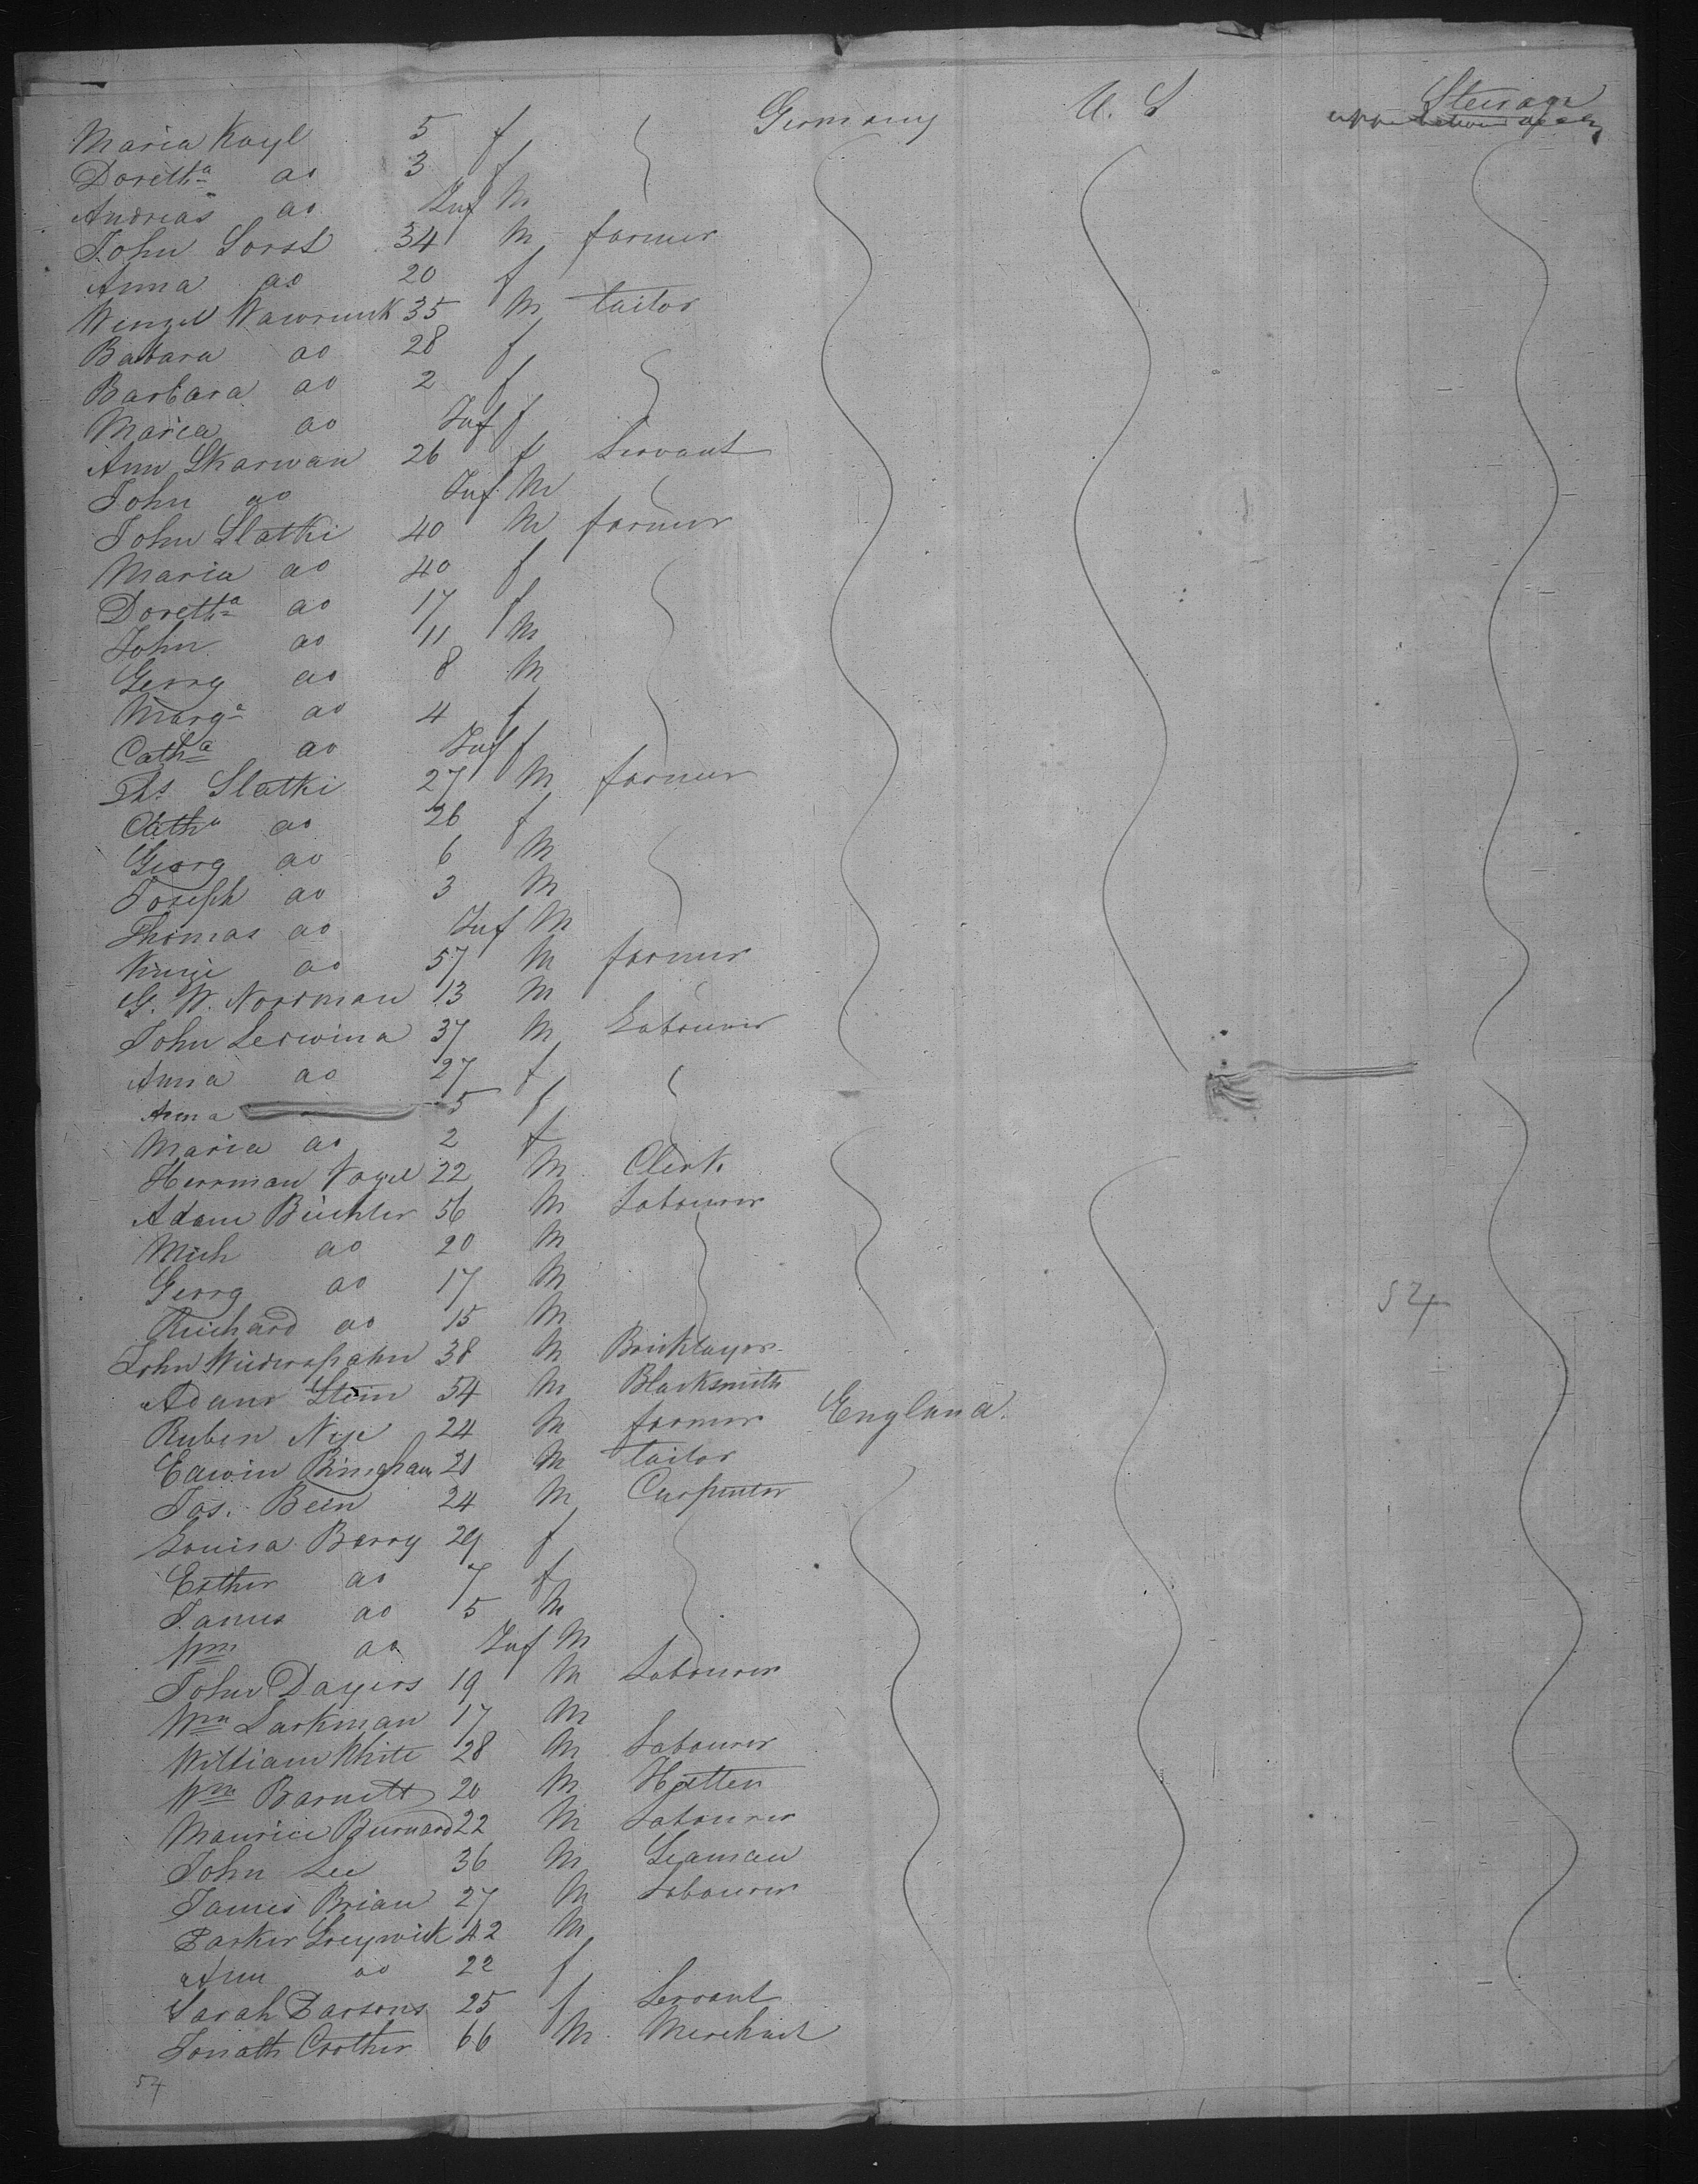 Maria Kayl 5 f Germany U. S Steerage
Doretta do 3 f
Andreas do Inf M
John Sorst 34 M farmer
Anna do 20 f
Wenzel Wawrunk 35 M tailor
Babara do 28 f
Barbara do 2 f
Maria do Inf f
Ann Skarwan 26 f Servant
John do Inf M
John Slatki 40 M farmer
Maria do 40 f
Doretta do 17 f
John do 11 M
Georg do 8 M
Marga do 4 f
Catha do Inf f
Ths Slatki 27 M farmer
Catha do 26 f
Georg do 6 M
Joseph do 3 M
Thomas do Inf M
do 57 M farmer
G. W. Nordman 13 M
John Serwina 37 M Labourer
Anna do 27 f
Anna 5 f
Maria do 2 f
Herrman Vogel 22 M Clerk
Adam Büchler 56 M Labourer
Mich do 20 M
Georg do 17 M
Richard do 15 M
John Widerspahn 38 M Bricklayer
Adam Stein 54 M Blacksmith
Ruben Nye 24 M farmer England.
Edwin Bingham 21 M tailor
Jos. Been 24 M Carpenter
Louisa Barry 29 f
Esther do 7 f
James do 5 M
Wm do Inf M
John Dayers 19 M Labourer
Wm Larkman 17 M
William White 28 M Labourer
Wm Barnett 20 M Hatter
Maurice Burnard 22 M Labourer
John Lee 36 M Seaman
James Brian 27 M Labourer
Parker 42 M
Ann do 22 f
Sarah Parsons 25 f Servant
Jonath Crother 66 M Merchant
57
57